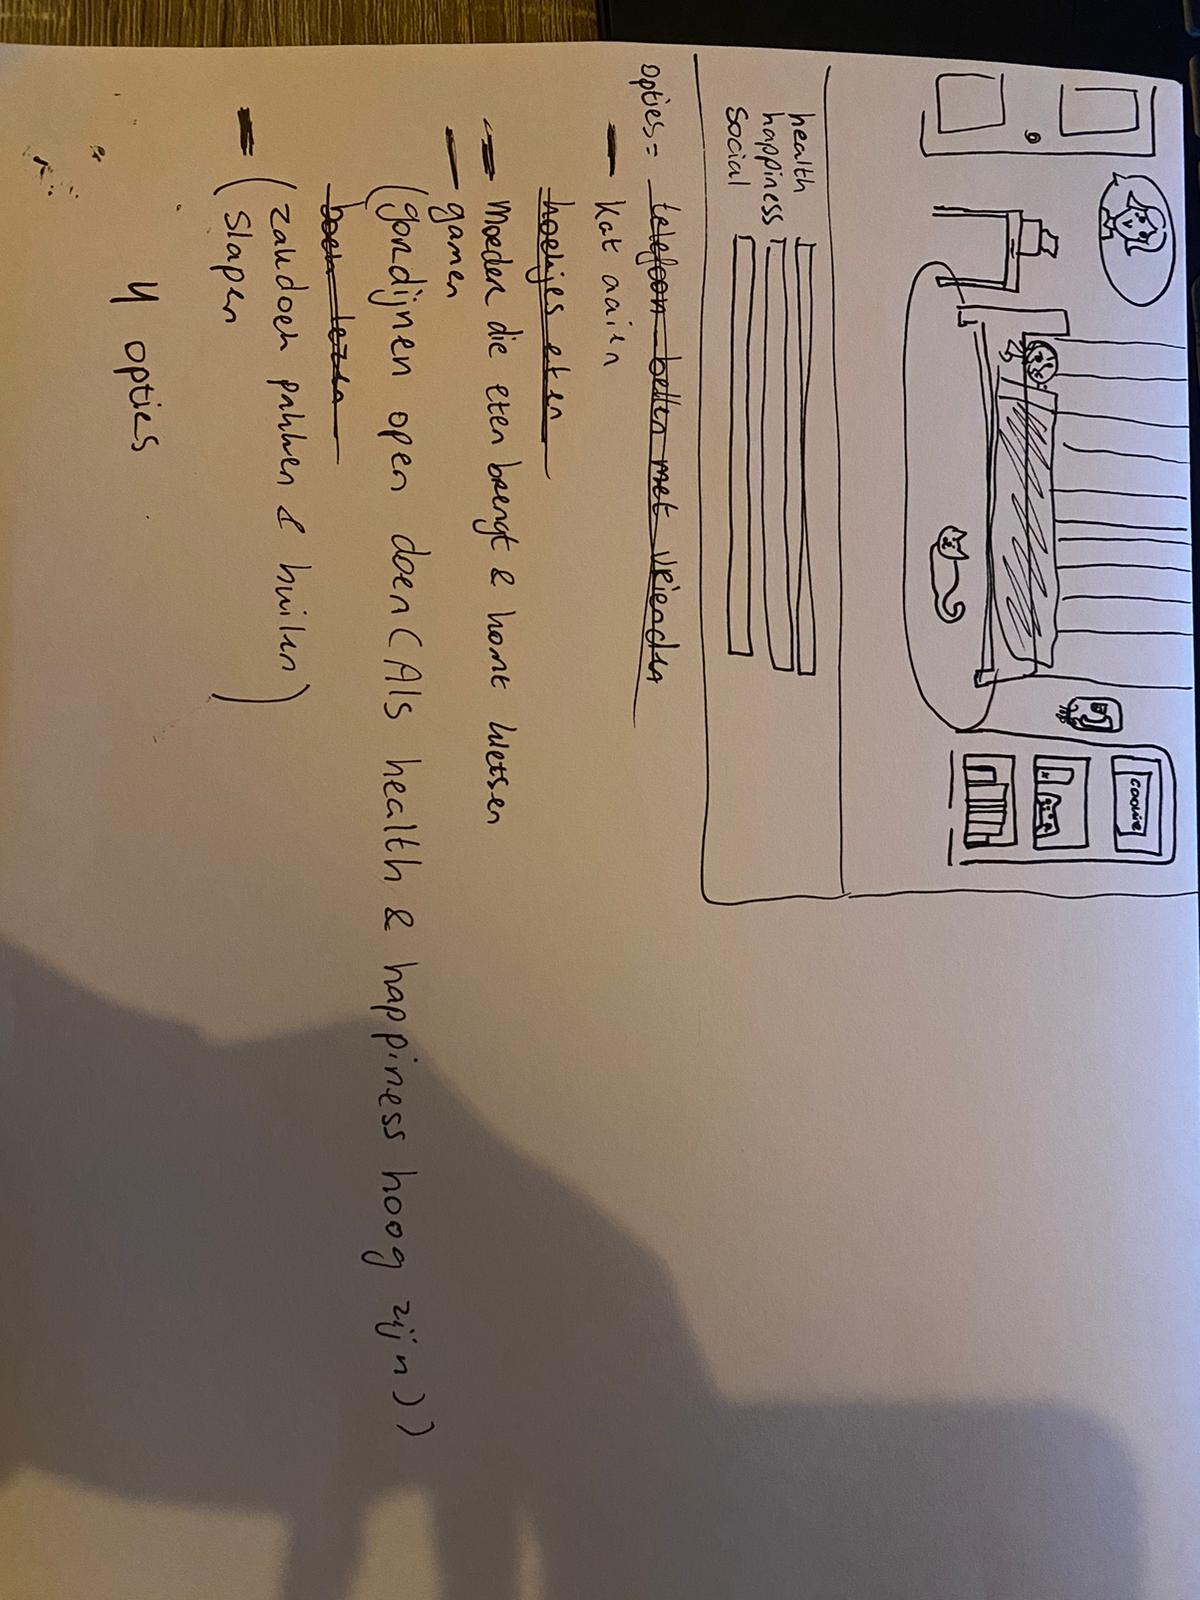 cookie
health
happiness
social
opties= telefoon bellen met vrienden
- kat aaien
koekjes eten
- moeder die eten brengt & komt kletsen
- gamen
(gordijnen open doen (Als health & happiness hoog zijn))
boek lezen
(zakdoek pakken & huilen)
- slapen
4 opties